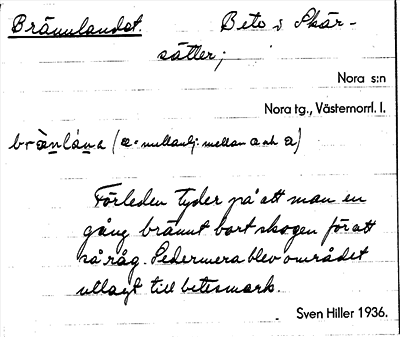 Brännlandet. Bete i Skär-
sätter;
Nora s:n
Nora tg., Västernorrl. l.
brànlána (a: mellanlj. mellan a och a)
Förleden tyder på att man en
gång bränt bort skogen för att
så råg. Sedermera blev området
utlagt till betesmark.
Sven Hiller 1936.